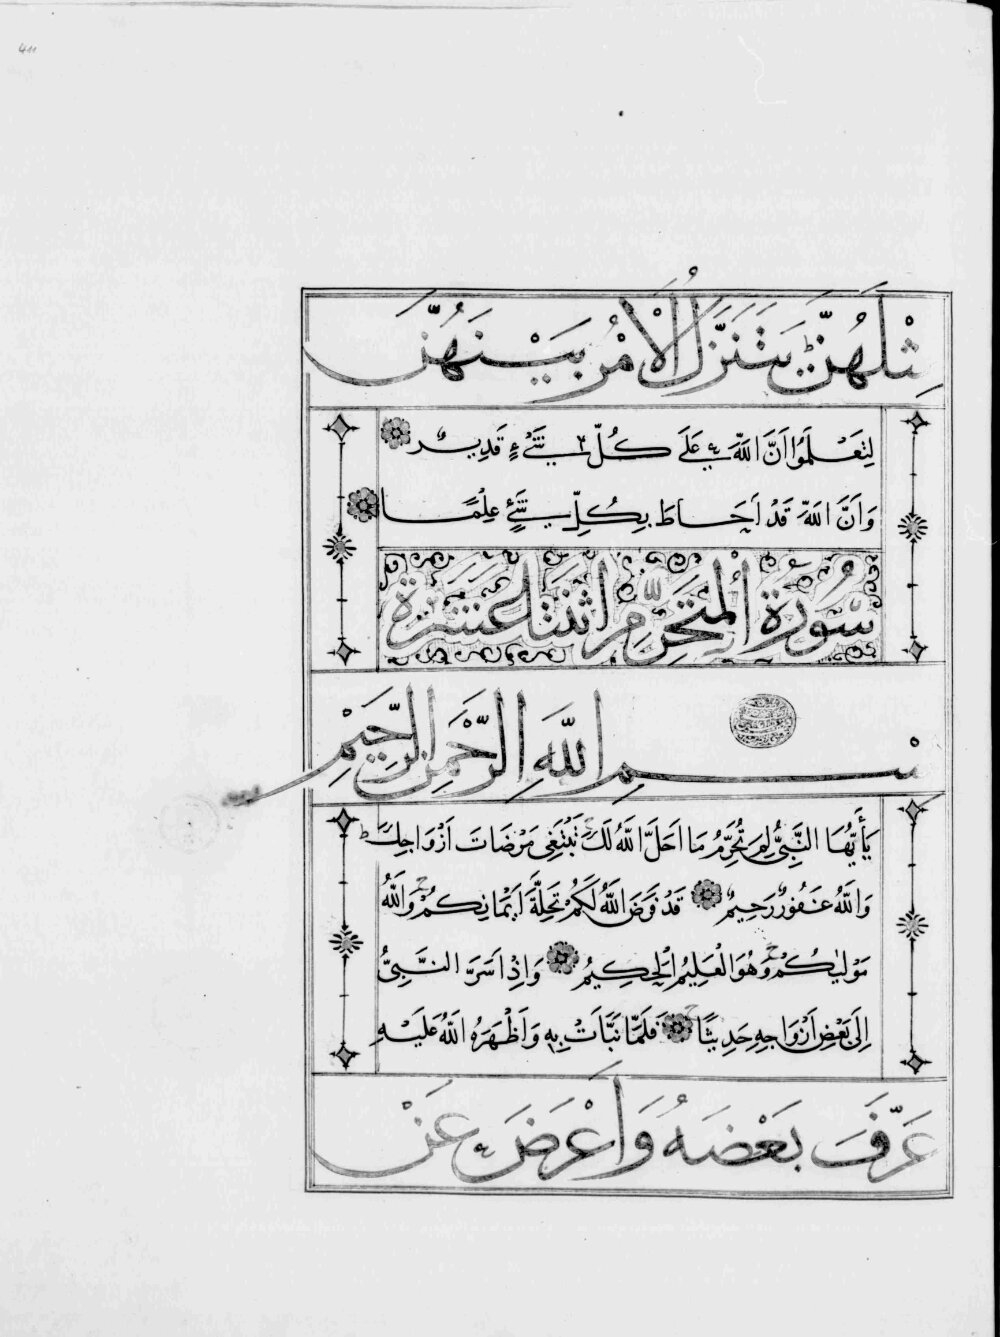 مِثْلَهُنَّ يَتَنَزَّلُ الْأَمْرُ بَيْنَهُنَّ
لِتَعْلَمُوا أَنَّ اللَّهَ عَلَى كُلِّ شَيْءٍ قَدِيرٌ
وَأَنَّ اللَّهَ قَدْ أَحَاطَ بِكُلِّ شَيْءٍ عِلْمًا
سُورَةُ الْمُتَحَرِّمِ اثْنَتَا عَشَرَةَ
بِسْمِ اللَّهِ الرَّحْمَنِ الرَّحِيمِ
يَا أَيُّهَا النَّبِيُّ لِمَ تُحَرِّمُ مَا أَحَلَّ اللَّهُ لَكَ تَبْتَغِي مَرْضَاتَ أَزْوَاجِكَ
وَاللَّهُ غَفُورٌ رَحِيمٌ قَدْ فَرَضَ اللَّهُ لَكُمْ تَحِلَّةَ أَيْمَانِكُمْ وَاللَّهُ
مَوْلٰيكُمْ وَهُوَ الْعَلِيمُ الْحَكِيمُ وَإِذْ أَسَرَّ النَّبِيُّ
إِلَى بَعْضِ أَزْوَاجِهِ حَدِيثًا فَلَمَّا نَبَّأَتْ بِهِ وَأَظْهَرَهُ اللَّهُ عَلَيْهِ
عَرَّفَ بَعْضَهُ وَأَعْرَضَ عَنْ